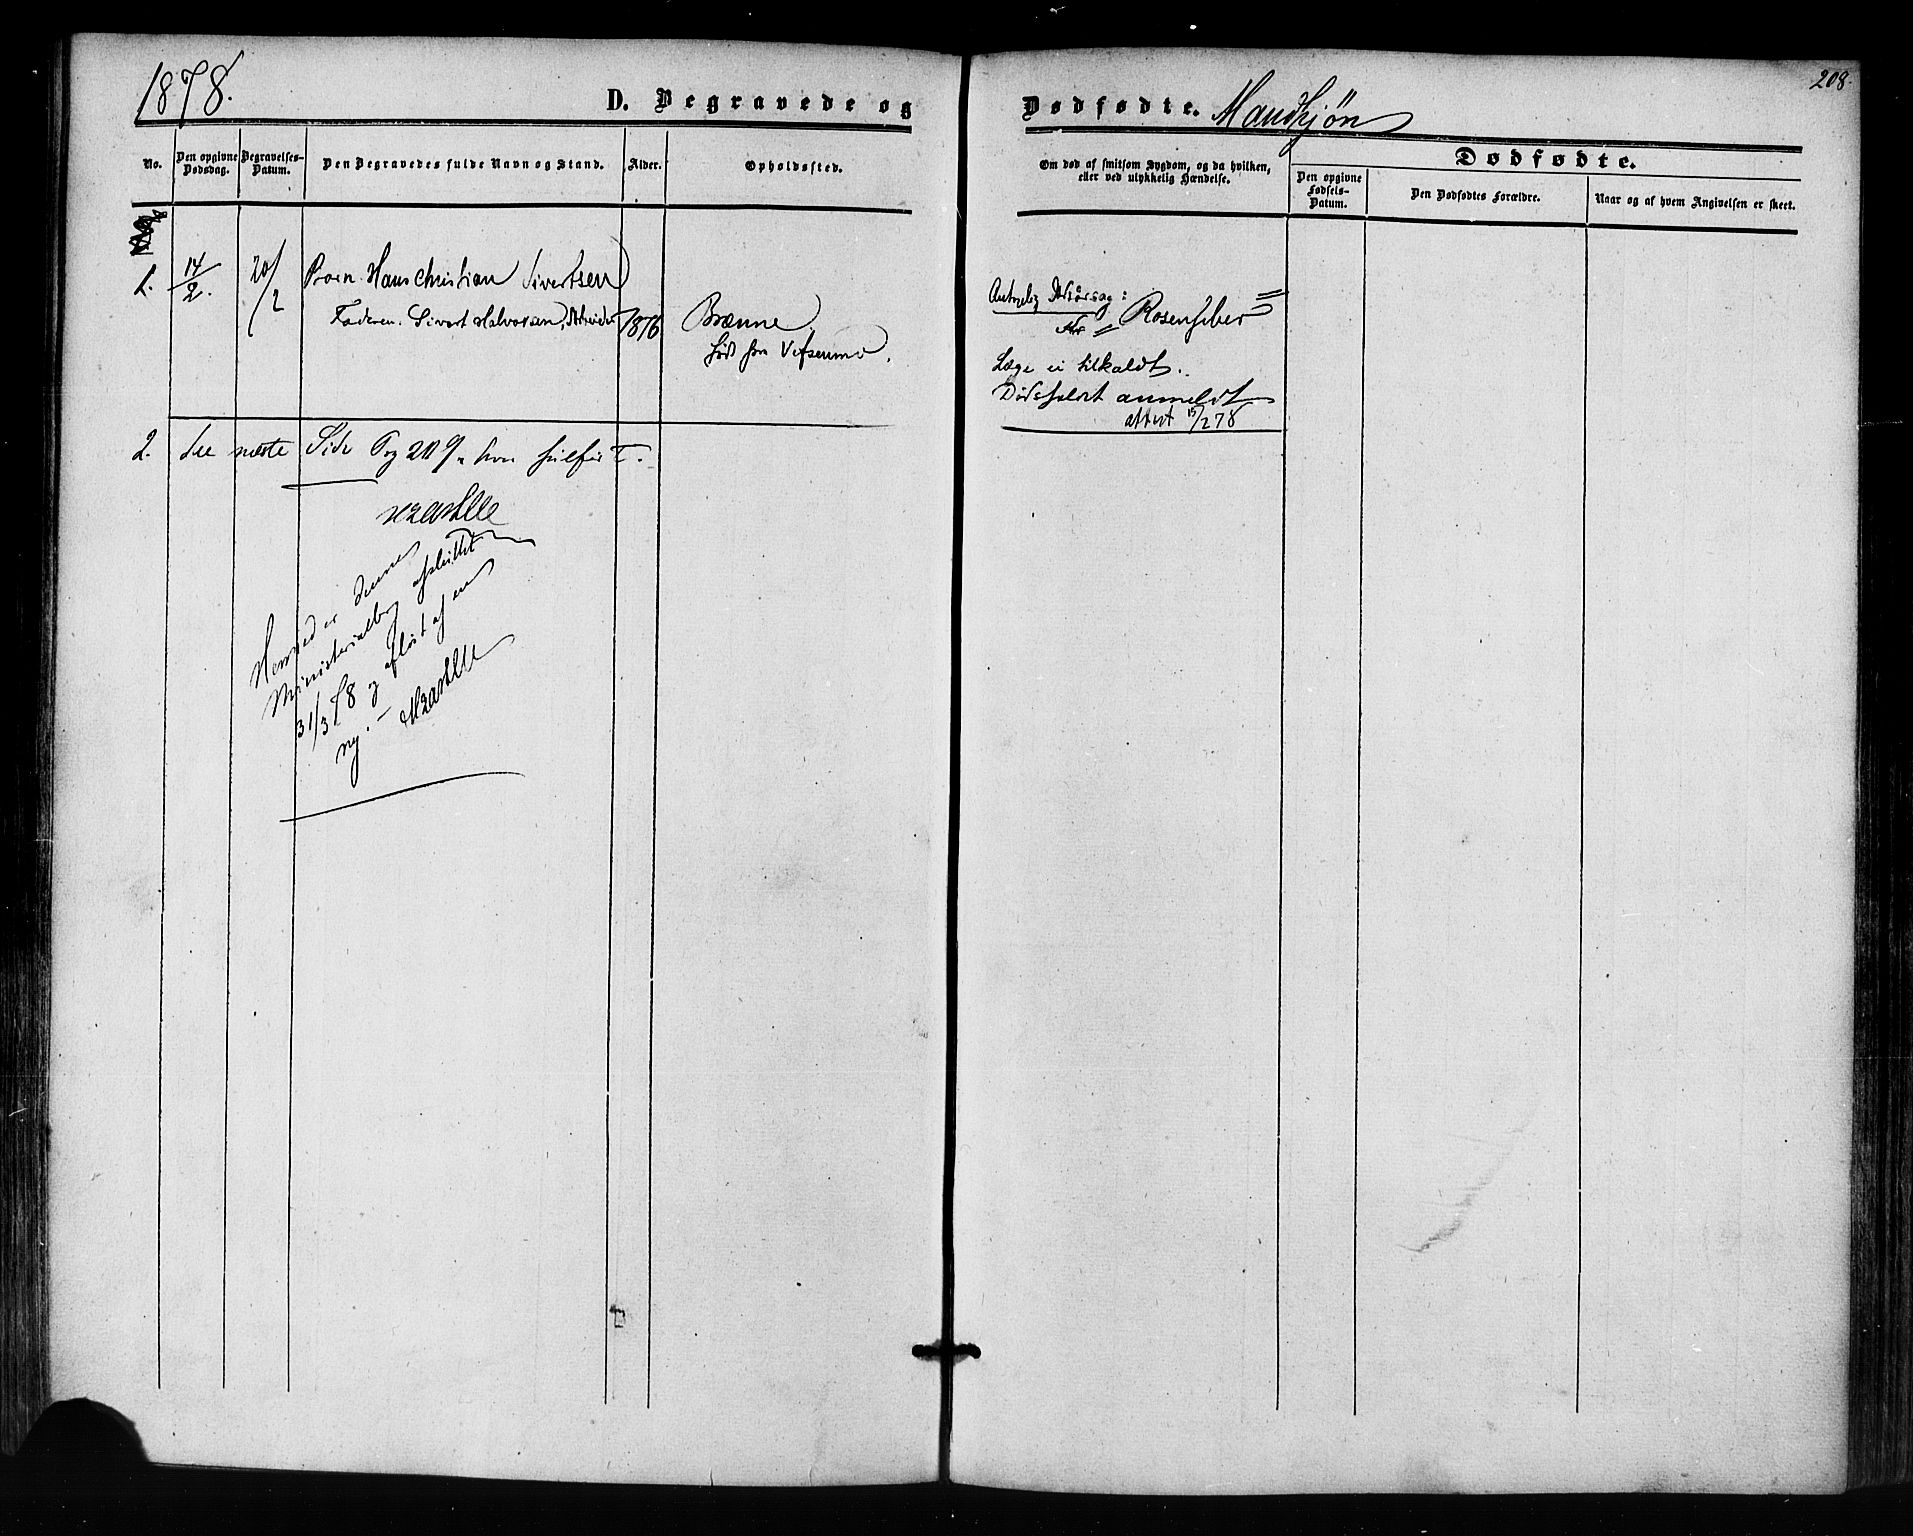 1878.
D. Begravede og
No.
Den opgivne Dødsdag.
Begravelses-Datum.
Den Begravedes fulde Navn og Stand.
Alder.
Opholdssted.
1.
14/2.
20/2
Barn Hans Christian Sivertsen
Faderen. Sivert Halvorsen, Arbeider
1876
Brænne.
født paa Vefsenmo.
2. See næste Side Pag 209,
Hermed er denne
Ministerialbog afsluttet
31/3 78 og afløst af en
ny. –
208.
Dødfødte. Mandkjøn
Om død af smitsom Sygdom, og da hvilken,
eller ved ulykkelig Hændelse.
Dødfødte.
Den opgivne Fødsels-Datum.
Den Dødfødtes Forældre.
Naar og af hvem Angivelsen er skeet.
Antagelig Dødsårsag:
Rosenfeber
Læge ei tilkaldt.
Dødsfaldet anmeldt
attest 15/2 78